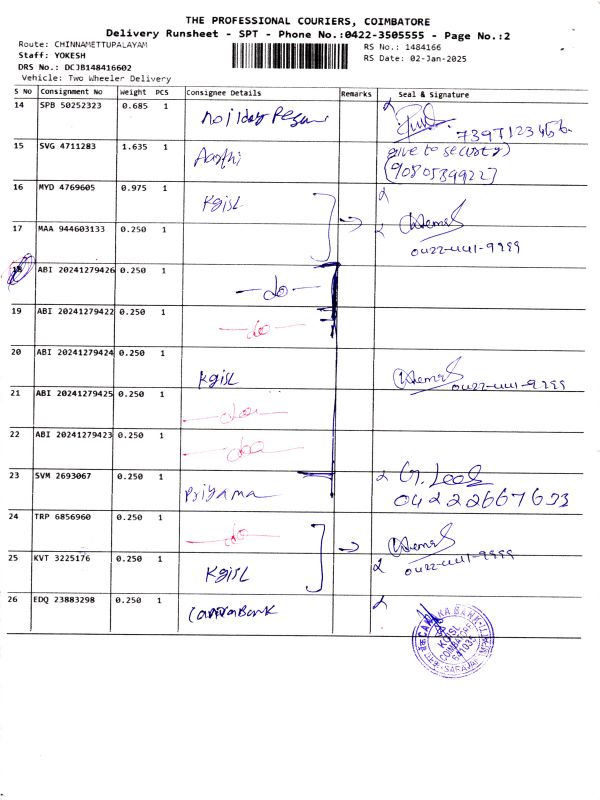 THE PROFESSIONAL COURIERS, COIMBATORE
Delivery Runsheet - SPT - Phone No.:0422-3505555 - Page No.:2
Route: CHINNAMETTUPALAYAM
RS No.: 1484166
Staff: YOKESH
RS Date: 02-Jan-2025
DRS No.: DCJB148416602
Vehicle: Two Wheeler Delivery
S No Consignment No Weight PCS Consignee Details Remarks Seal & Signature
14 SPB 50252323 0.685 1
7397123456
15 SVG 4711283 1.635 1 Aarthi give to security
(9080539922)
16 MYD 4769605 0.975 1 KgisL
17 MAA 944603133 0.250 1
0422-441-9999
18 ABI 20241279426 0.250 1 -do-
19 ABI 20241279422 0.250 1 -do-
20 ABI 20241279424 0.250 1 KgisL 0422-441-9999
21 ABI 20241279425 0.250 1 -do-
22 ABI 20241279423 0.250 1 -do-
23 SVM 2693067 0.250 1 Priyama
04222667633
24 TRP 6856960 0.250 1 -do-
25 KVT 3225176 0.250 1 KgisL 0422-441-9999
26 EDQ 23883298 0.250 1 Canara Bank
CANARA BANK
KGISL
COIMBATORE
641035